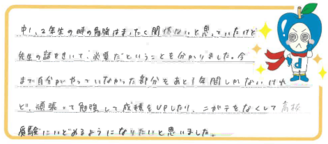 中1、2年生の時の勉強はまったく関係ないと思っていたけど
先生の話をきいて、必要だということを分かりました。今
まで自分がやっていなかった部分をあと1年間しかないけれ
ど、頑張って勉強して成績をUPしたり、ニガテをなくして高校
受験にいどめるようになりたいと思いました。
d